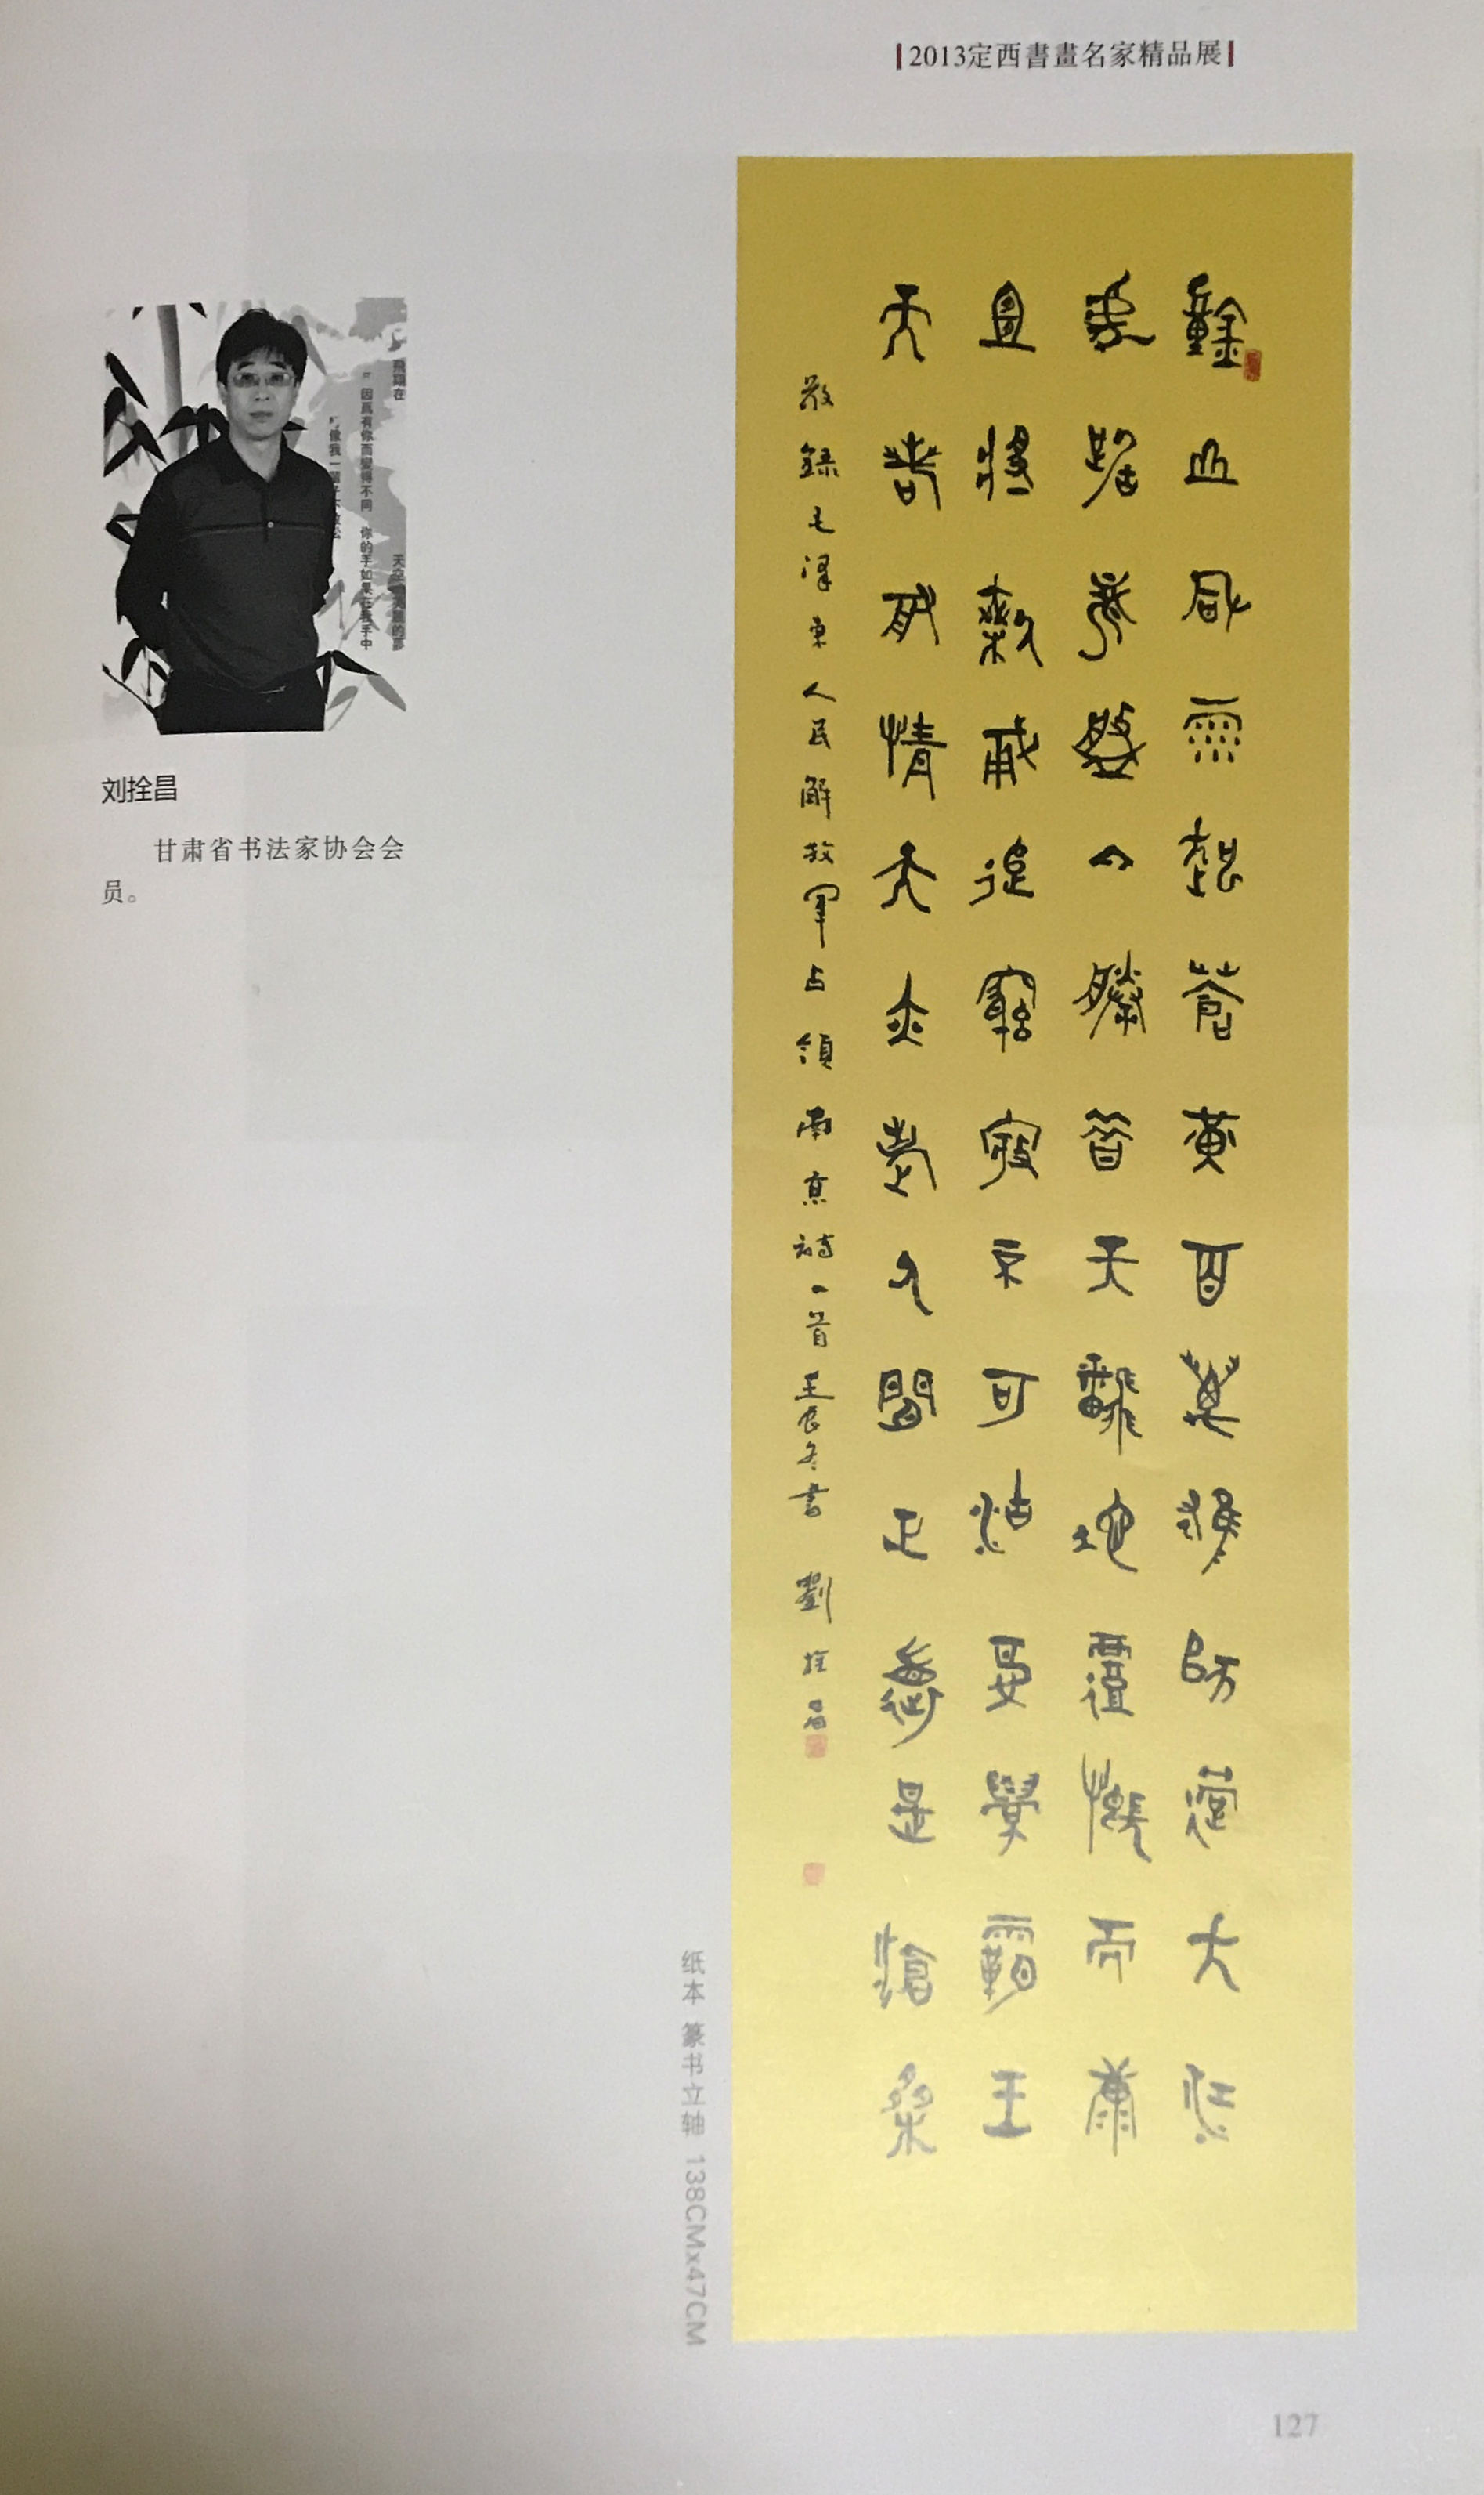 2013定西書畫名家精品展
鐘山風雨起蒼黃百萬雄師過大江
虎踞龍盤今勝昔天翻地覆慨而慷
宜將剩勇追窮寇不可沽名學霸王
天若有情天亦老人間正道是滄桑
敬錄毛澤東人民解放軍占領南京詩一首壬辰冬書 劉拴昌
飛翔在
因爲有你而變得不同 你的手如果在我手中
刘拴昌
甘肃省书法家协会会
员。
纸本 篆书立轴 138CMx47CM
127